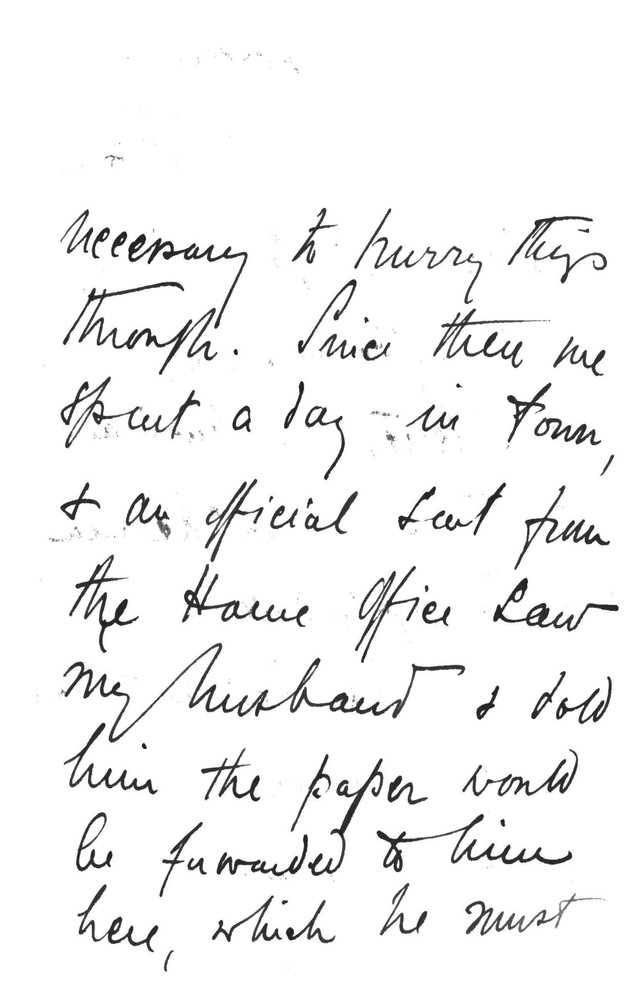 necessary to hurry things
through. Since then we
spent a day in Town,
& an official sent from
the Home Office saw
my husband & told
him the paper would
be forwarded to him
here, which he must